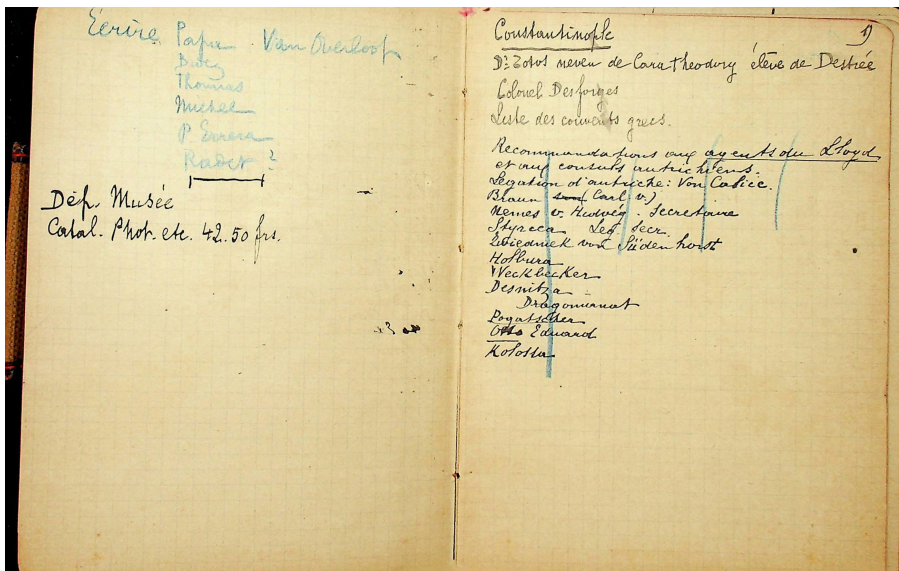 Écrire Papa Van Overloop
Bidez
Thomas
Michel
P. Errera
Radet ?
Dép. Musée
Catal. Phot. etc. 42.50 frs.
9
Constantinople
Dr Zotos neveu de Caratheodory élève de Destrée
Colonel Desforges
Liste des couvents grecs.
Recommandations aux agents du Lloyd
et aux consuls autrichiens.
Légation d'autriche: Von Calice.
Braun (Carl v.)
Nemes v. Hidvég. Secrétaire
Styrcea Leg. Secr.
Zwiedinek von Südenhorst
Weckbecker
Desnitza
Dragomanat
Pogatscher
Otto Eduard
Kolossa